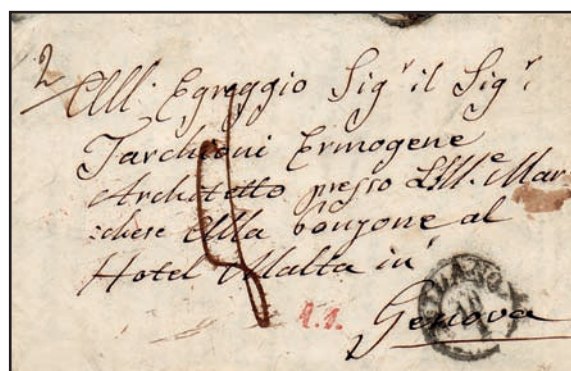 2
All. Egreggio Sigr il Sigr
Tarchioni Ermogene
Architetto presso L'Ill.e Mar
chese Alla bonzone al
Hotel Malta in
Genova